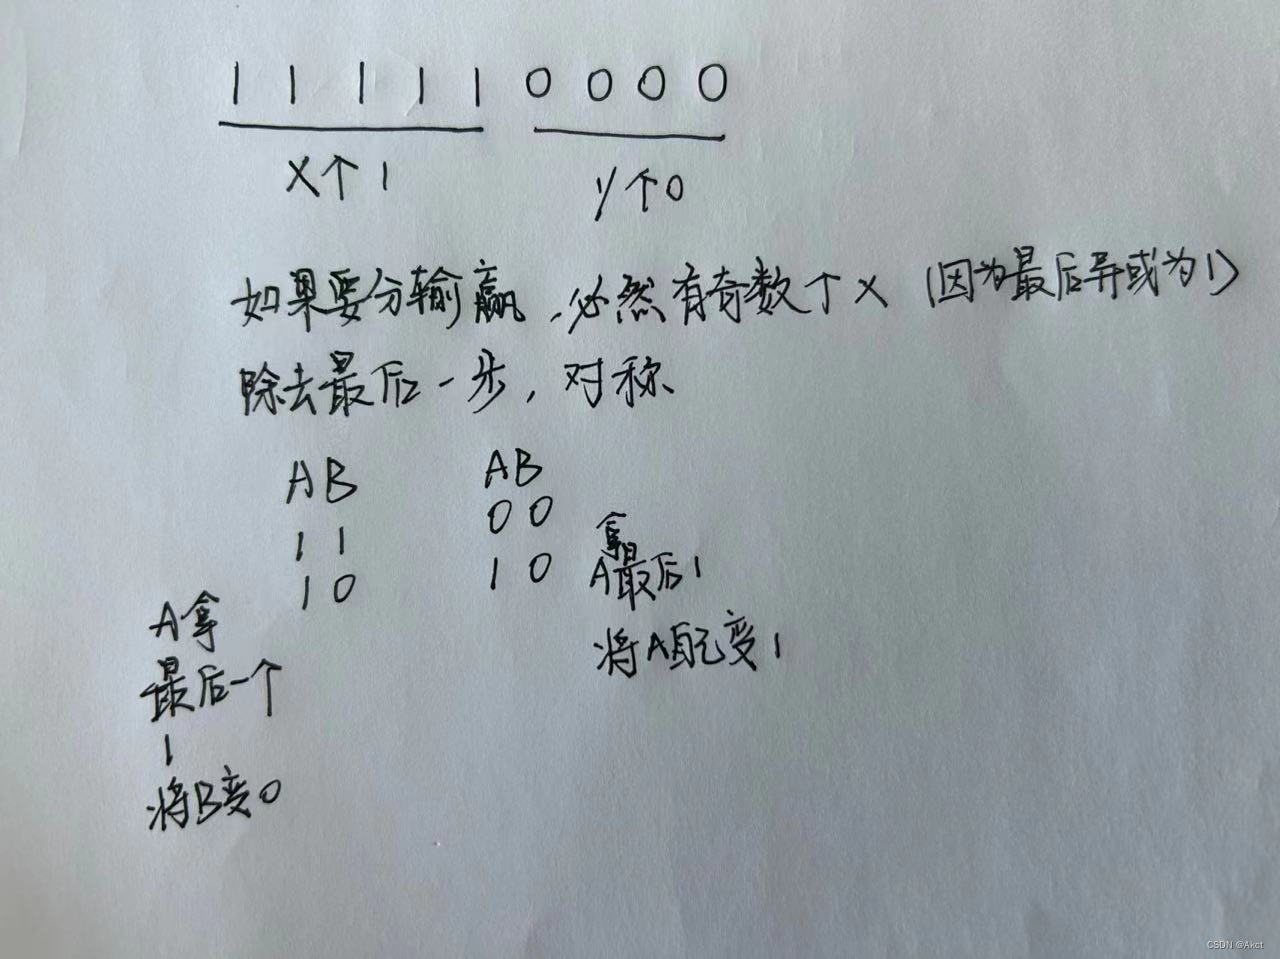 1 1 1 1 1 0 0 0 0
X个1
y个0
如果要分输赢,必然有奇数个X (因为最后异或为1)
除去最后一步,对称
A B
1 1
1 0
A拿
最后一个
1
将B变0
A B
0 0
1 0
A拿最后1
将A自己变1
CSDN @Akct